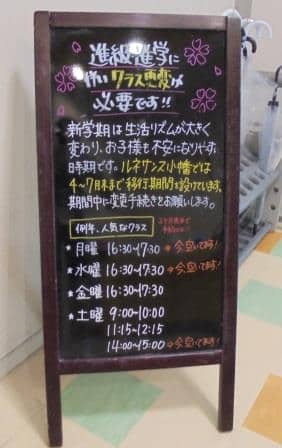 進級・進学に
伴い クラス変更が
必要です!!
新学期は生活リズムが大きく
変わり、お子様も不安になりやすい
時期です。ルネサンス小幡では
4〜7月末まで移行期間を設けています。
期間中に変更手続きをお願いします。
例年、人気なクラス
* 月曜 16:30-17:30 → 今空いてます!
* 水曜 16:30-17:30 → 今空いてます!
* 金曜 16:30-17:30
* 土曜 9:00-10:00
11:15-12:15
14:00-15:00 → 今空いてます!